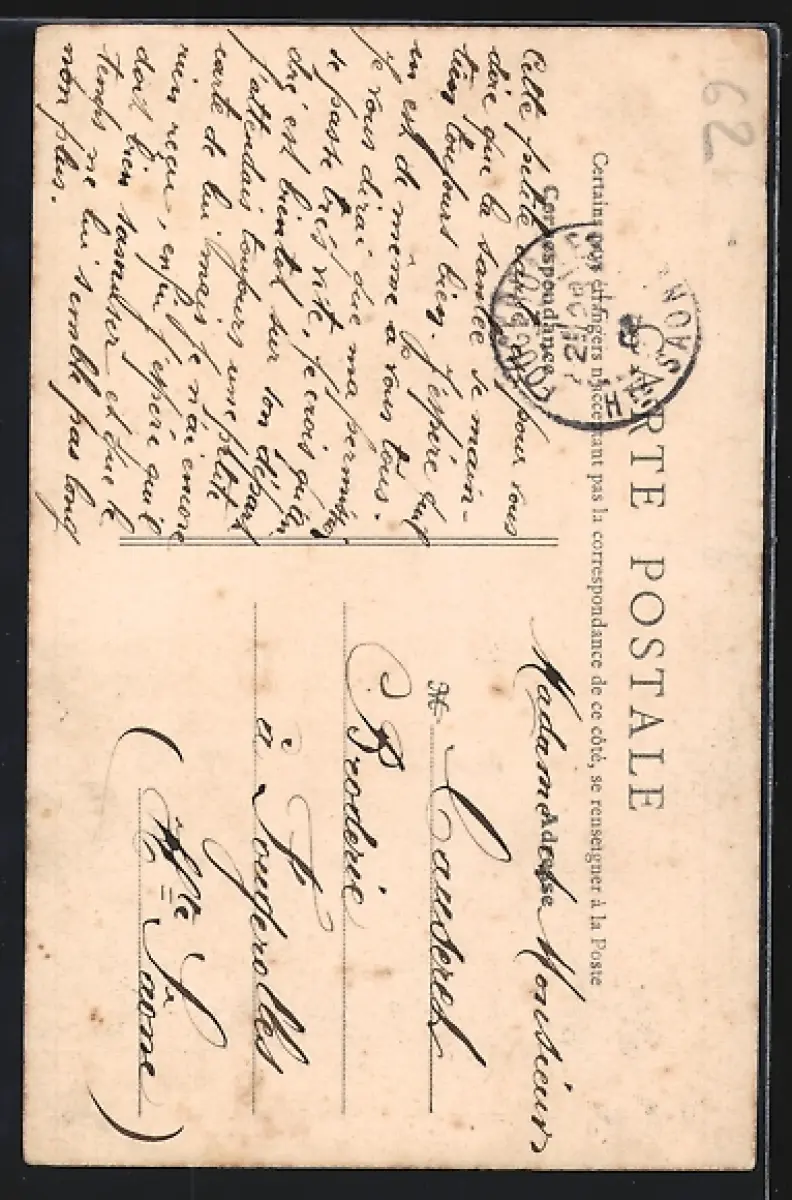 CARTE POSTALE
Certains pays étrangers n'acceptant pas la correspondance de ce côté, se renseigner à la Poste
Correspondance
Adresse
62
Cette petite carte pour vous
dire que la santée se main-
tien toujours bien. J'espère qu'il
en est de même a vous tous.
Je vous dirai que ma permission
se passe très vite, je crois qu'An
dré est bientot sur son départ
j'attendais toujours une petite
carte de lui mais je n'ai encore
rien reçu, enfin j'espère qu'il
doit bien samuser et que le
temps ne lui semble pas long
non plus.
Madame et Monsieur
M. Causeret
Broderie
à Fougerolles
(Hte Saône)